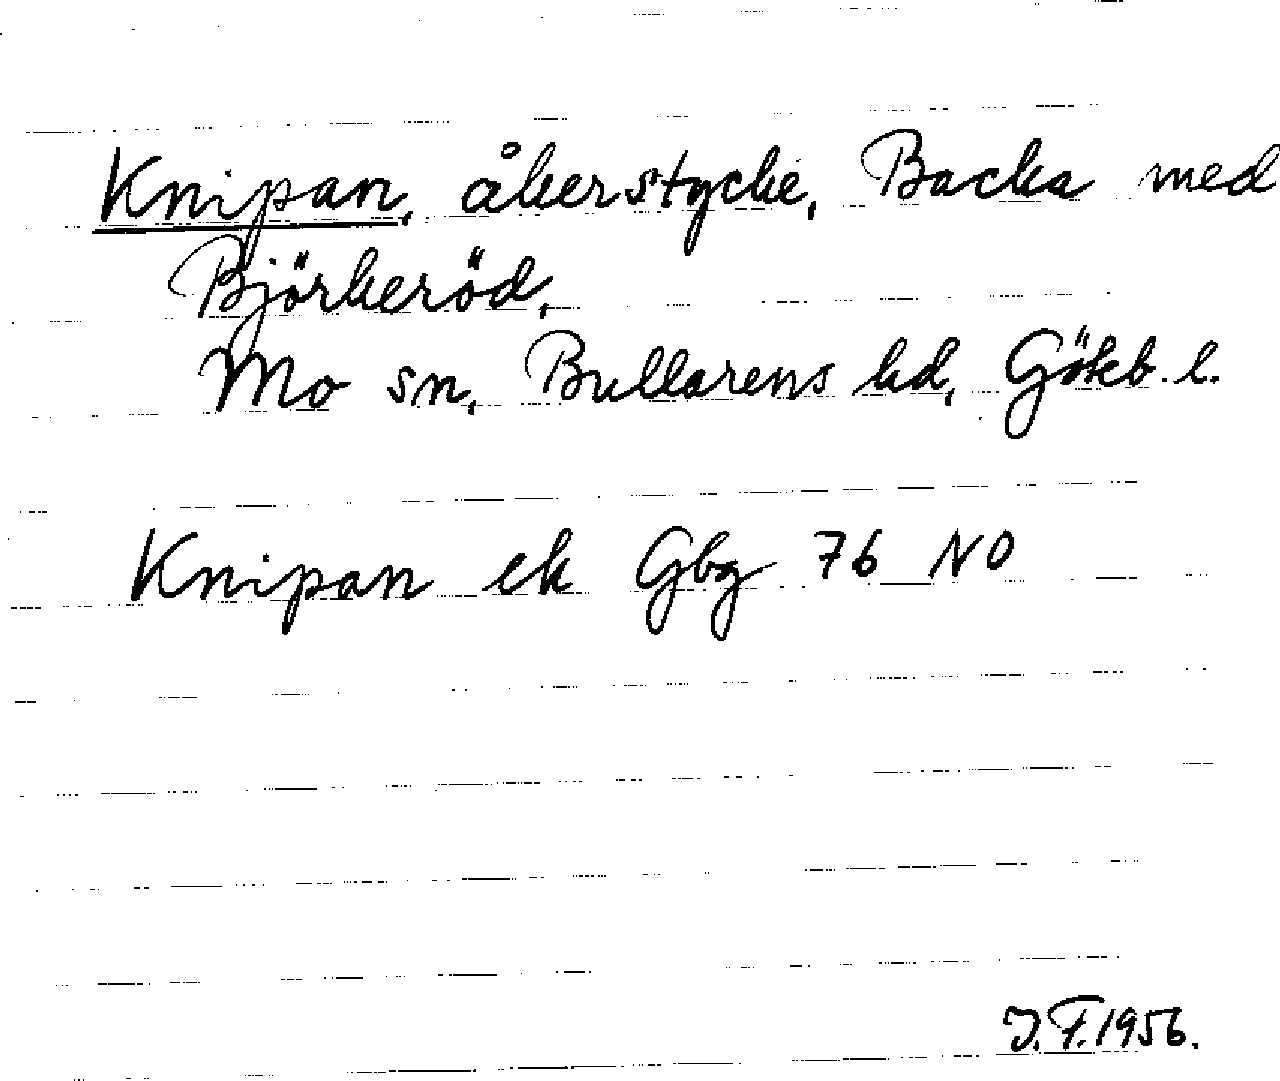 Knipan, åkerstycke, Backa med
Björkeröd,
Mo sn, Bullarens hd, Göteb. l.
Knipan ek Gbg 76 NO
J. F. 1956.